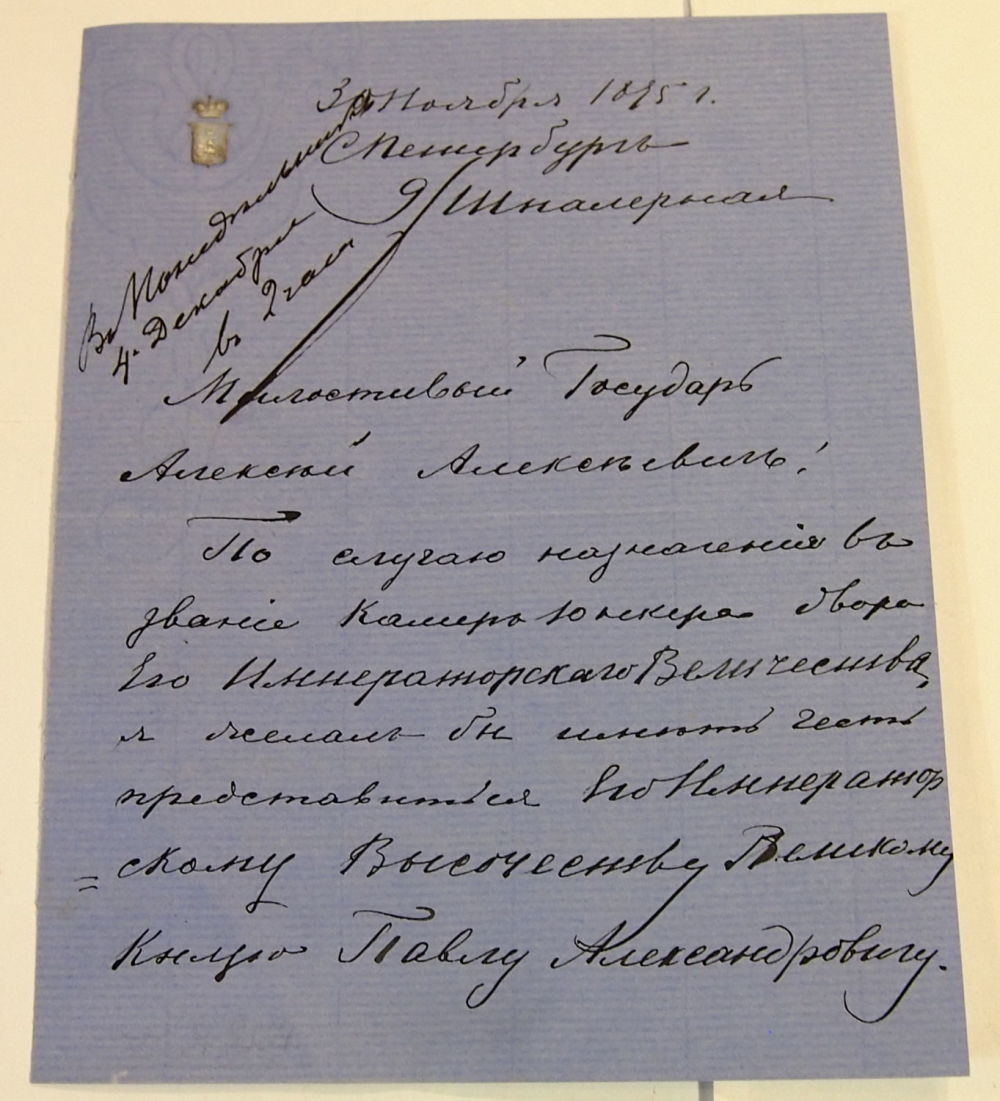 30 Ноября 1895 г.
СПетербургъ
9 Шпалерная
Въ Понедѣльникъ
4. Декабря
въ 2 часа
Милостивый Государь
Алексѣй Алексѣевичъ!
По случаю назначенія въ
званіе Камеръ Юнкера двора
Его Императорскаго Величества,
я желалъ бы имѣть честь
представиться Его Император
=скому Высочеству Великому
Князю Павлу Александровичу.